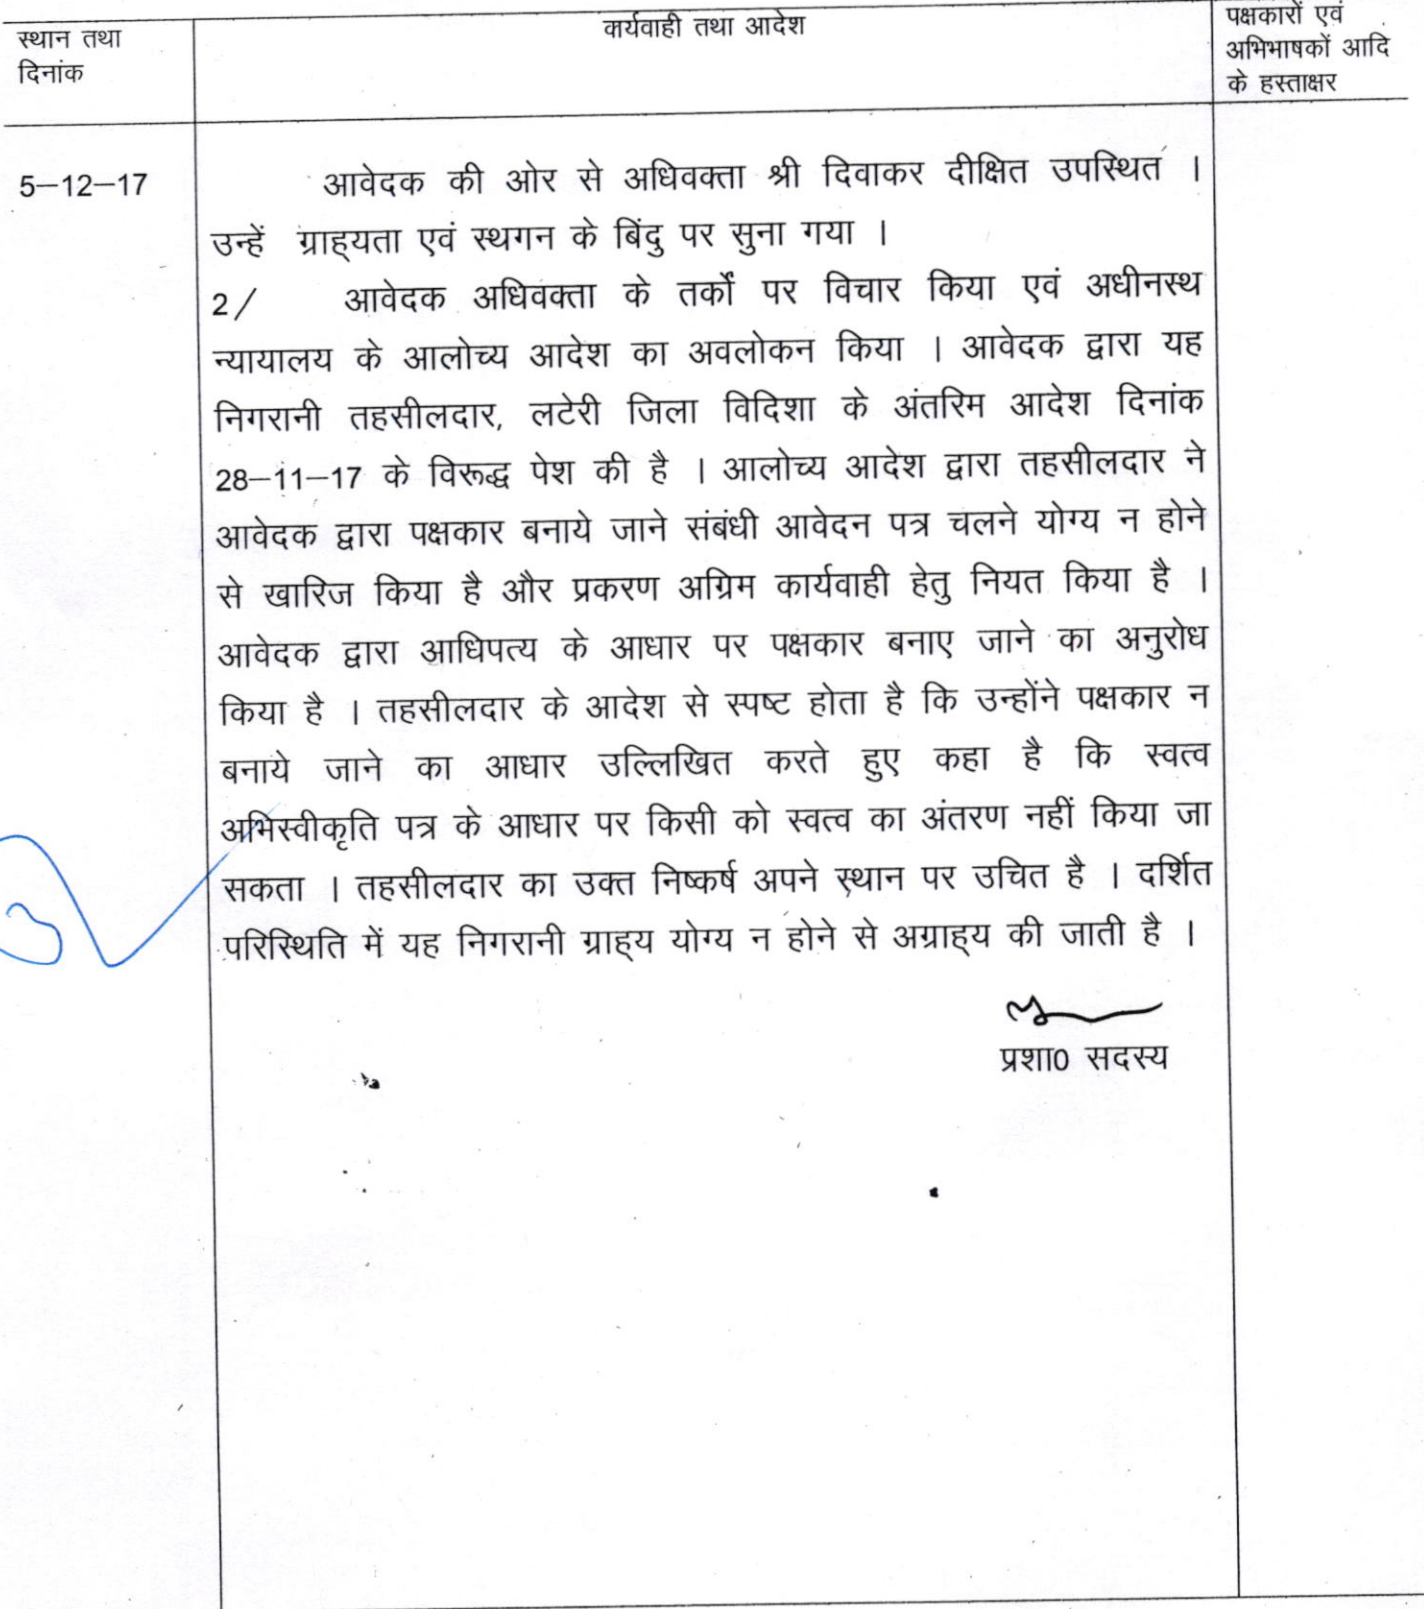 स्थान तथा
दिनांक
कार्यवाही तथा आदेश
पक्षकारों एवं
अभिभाषकों आदि
के हस्ताक्षर
5–12–17
आवेदक की ओर से अधिवक्ता श्री दिवाकर दीक्षित उपस्थित ।
उन्हें ग्राह्यता एवं स्थगन के बिंदु पर सुना गया ।
2/ आवेदक अधिवक्ता के तर्कों पर विचार किया एवं अधीनस्थ
न्यायालय के आलोच्य आदेश का अवलोकन किया । आवेदक द्वारा यह
निगरानी तहसीलदार, लटेरी जिला विदिशा के अंतरिम आदेश दिनांक
28–11–17 के विरूद्ध पेश की है । आलोच्य आदेश द्वारा तहसीलदार ने
आवेदक द्वारा पक्षकार बनाये जाने संबंधी आवेदन पत्र चलने योग्य न होने
से खारिज किया है और प्रकरण अग्रिम कार्यवाही हेतु नियत किया है ।
आवेदक द्वारा आधिपत्य के आधार पर पक्षकार बनाए जाने का अनुरोध
किया है । तहसीलदार के आदेश से स्पष्ट होता है कि उन्होंने पक्षकार न
बनाये जाने का आधार उल्लिखित करते हुए कहा है कि स्वत्व
अभिस्वीकृति पत्र के आधार पर किसी को स्वत्व का अंतरण नहीं किया जा
सकता । तहसीलदार का उक्त निष्कर्ष अपने स्थान पर उचित है । दर्शित
परिस्थिति में यह निगरानी ग्राह्य योग्य न होने से अग्राह्य की जाती है ।
प्रशा0 सदस्य